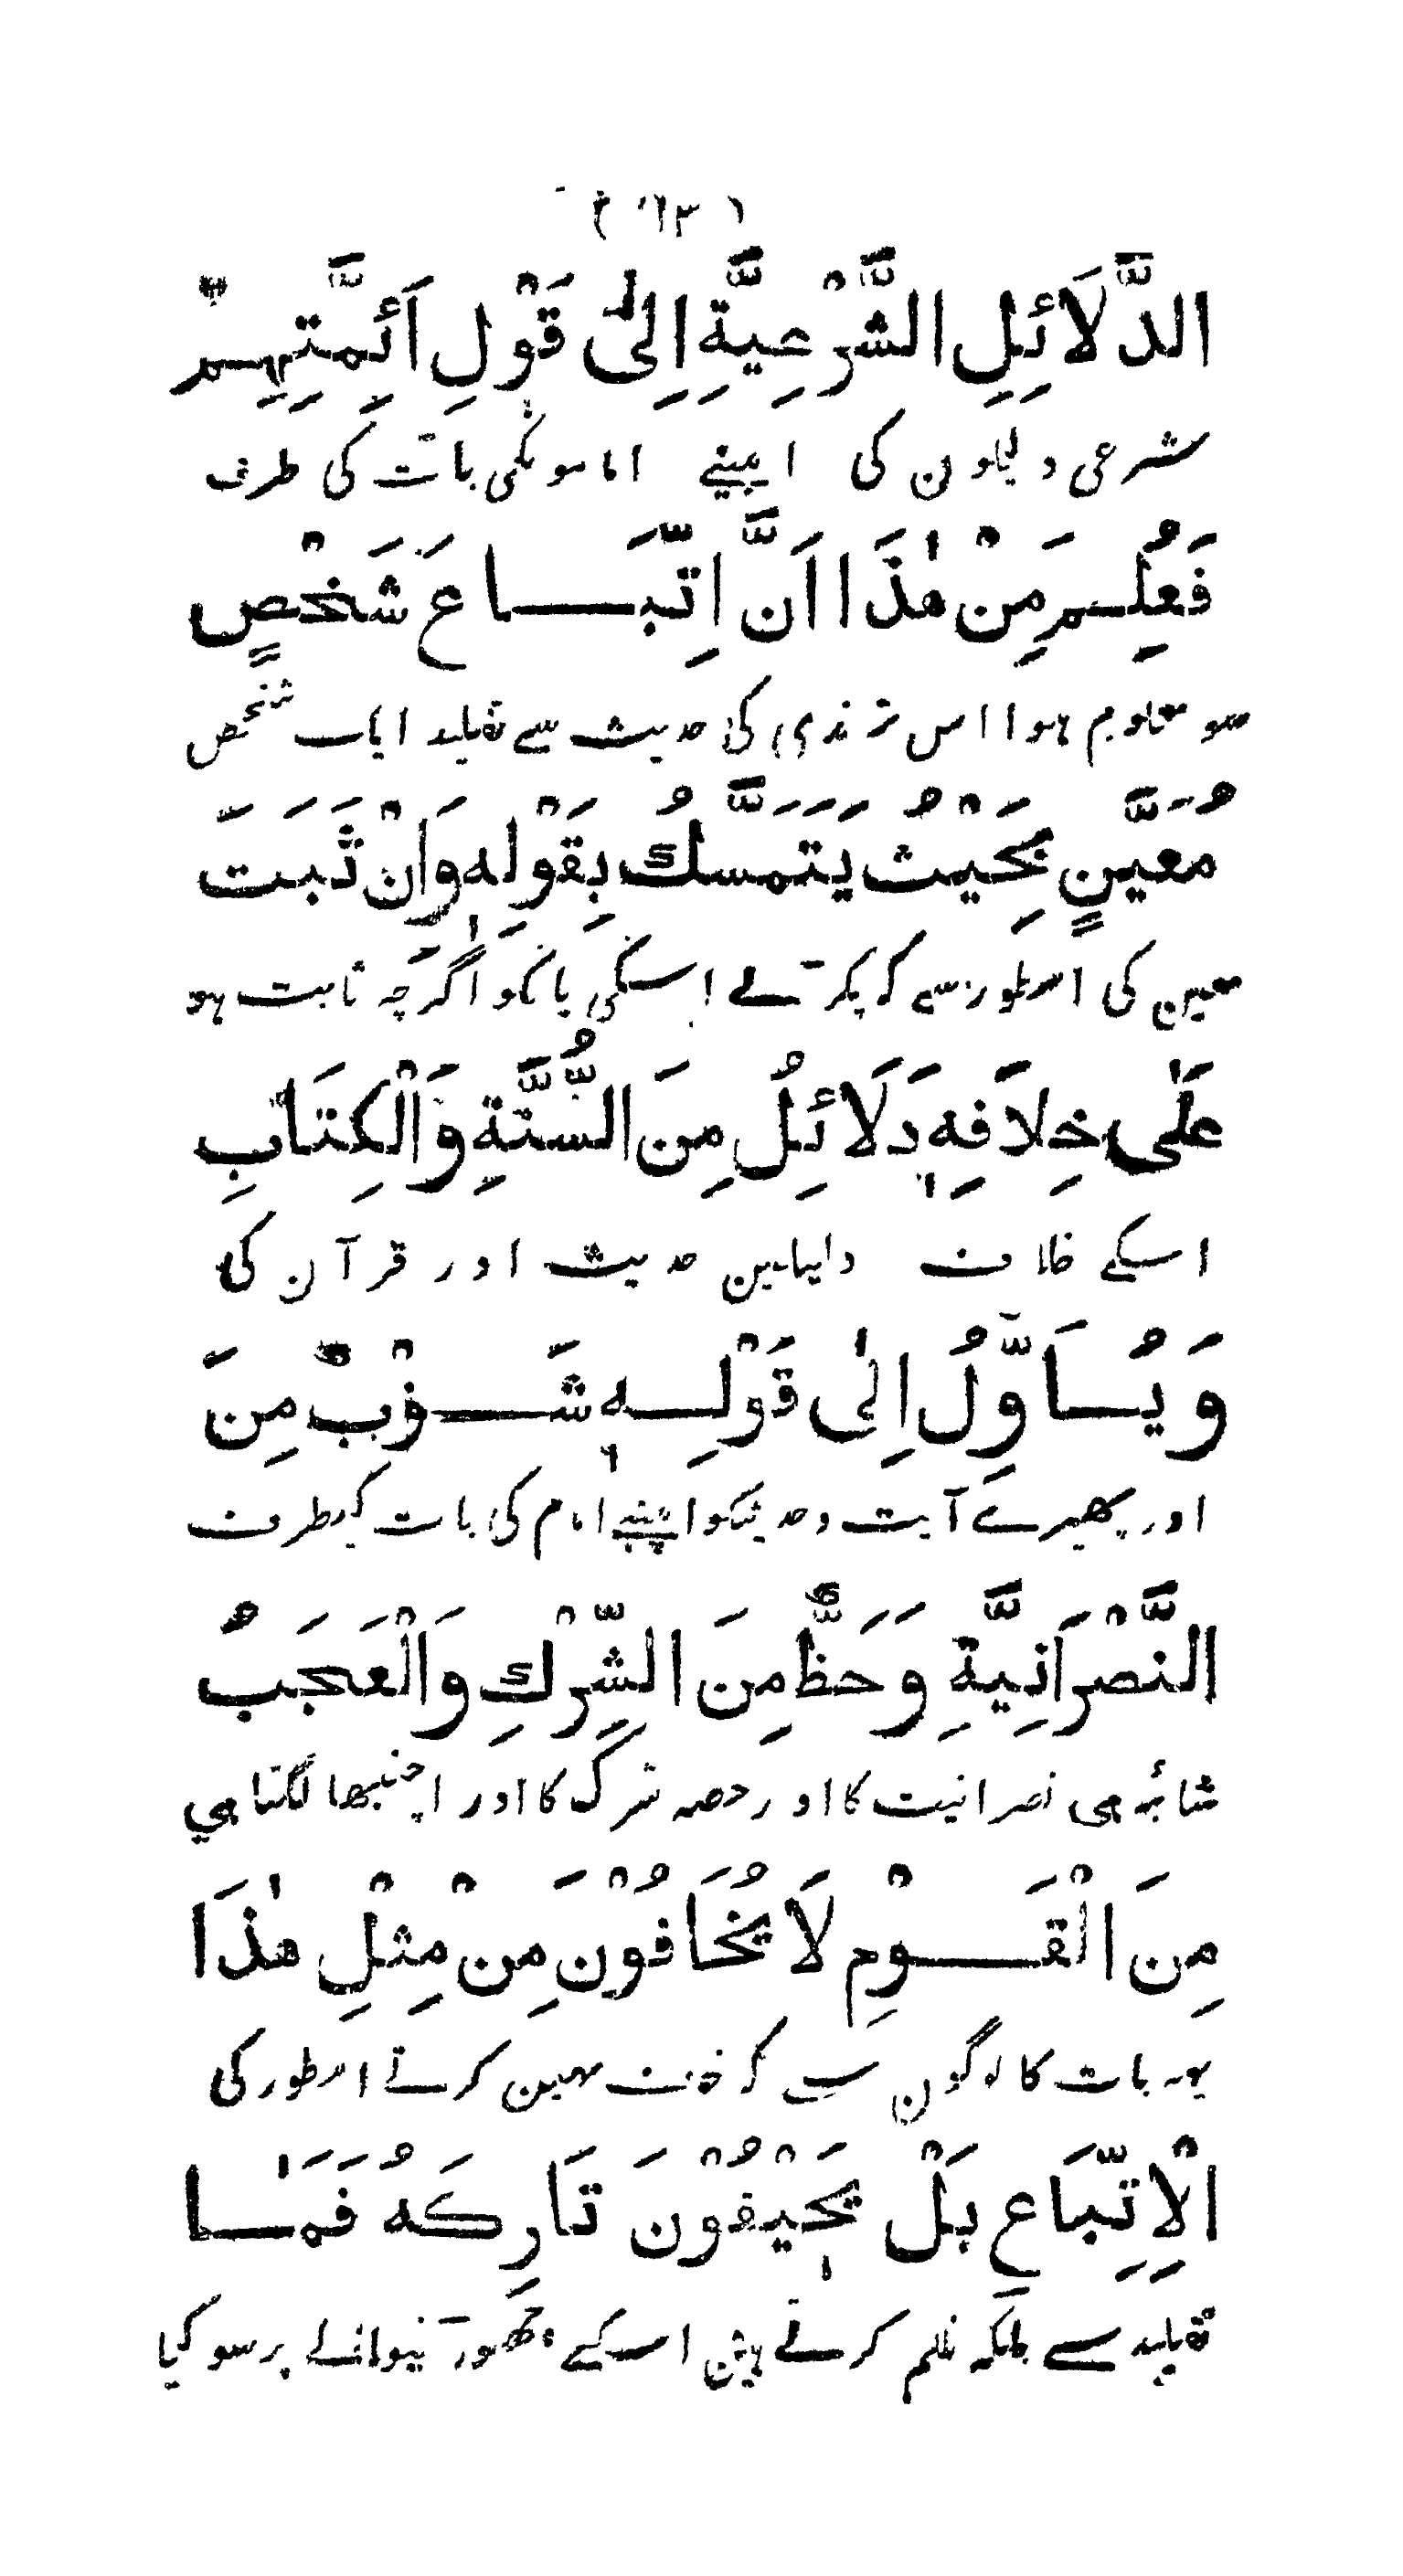 الدَّلَائِلِ الشَّرْعِيَّةِ اِلٰى قَوْلِ اَئِمَّتِهِمْ
شرعی دلیلون کی اپنے امامونکی بات کی طرف
فَعُلِمَ مِنْ هٰذَا اَنَّ اِتِّبَاعَ شَخْصٍ
سو معلوم ہوا اس ترمذی کی حدیث سے تقلید ایک شخص
مُعَيَّنٍ بِحَيْثُ يَتَمَسَّكُ بِقَوْلِهٖ وَاِنْ ثَبَتَ
معین کی اسطور سے کہ پکڑ لے اسکی باتکو اگرچہ ثابت ہو
عَلٰى خِلَافِهٖ دَلَائِلُ مِنَ السُّنَّةِ وَالْكِتَابِ
اسکے خلاف دلیلین حدیث اور قرآن کی
وَيُأَوِّلُ اِلٰى قَوْلِهٖ شَوْبٌ مِنَ
اور پھیرے آیت و حدیثکو اپنے امام کی بات کیطرف
النَّصْرَانِيَّةِ وَحَظٌّ مِنَ الشِّرْكِ وَالْعَجَبُ
شائبہ ہی نصرانیت کا اور حصہ شرک کا اور اچنبھا لگتا ہی
مِنَ الْقَوْمِ لَا يَخَافُوْنَ مِنْ مِثْلِ هٰذَا
یہہ بات کا لوگون سے کہ خوف نہین کرتے اسطور کی
الْاِتِّبَاعِ بَلْ يَحِيْفُوْنَ تَارِكَهُ فَمَا
تقلید سے بلکہ ظلم کرتے ہین اسکے چھوڑنیوالے پر سو کیا